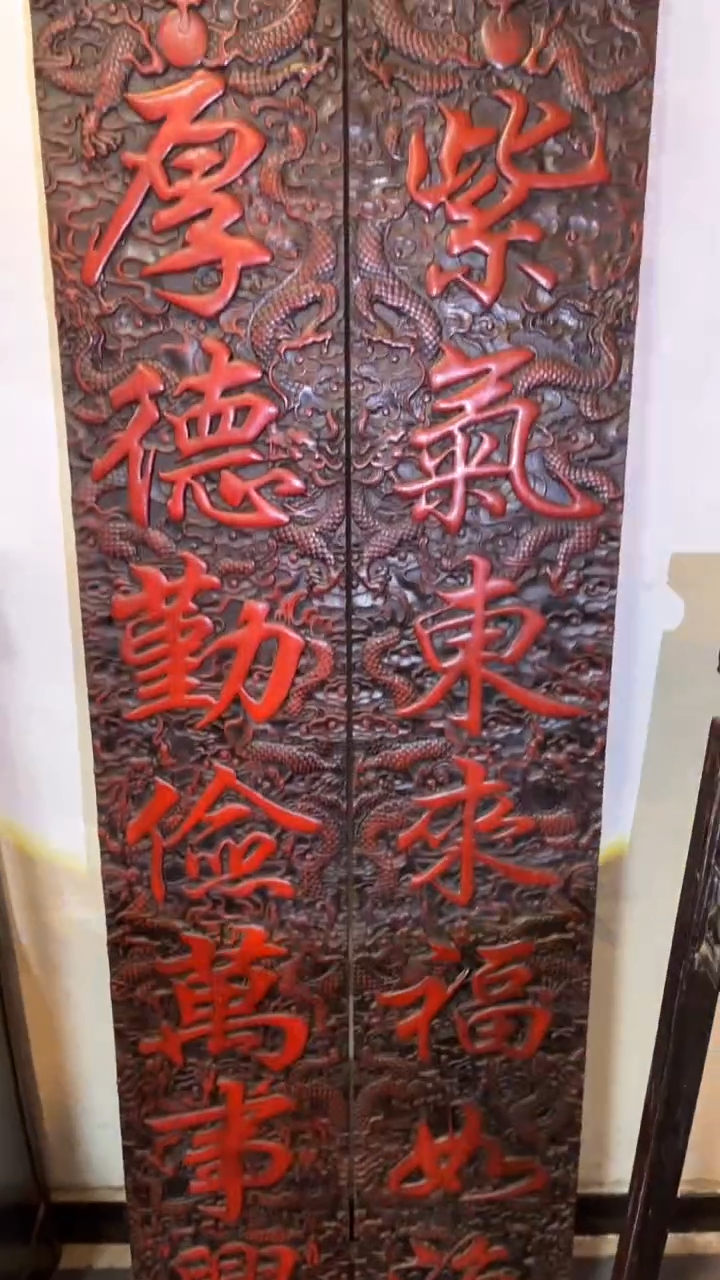 紫氣東來福如海
厚德勤儉萬事興